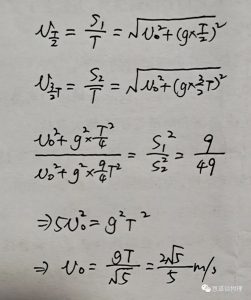 v_{T/2} = S₁/T = √(v₀² + (g×T/2)²)
v_{3/2 T} = S₂/T = √(v₀² + (g×3/2 T)²)
(v₀² + g²×T²/4)/(v₀² + g²×9/4 T²) = S₁²/S₂² = 9/49
⇒ 5v₀² = g²T²
⇒ v₀ = gT/√5 = 2√5/5 m/s